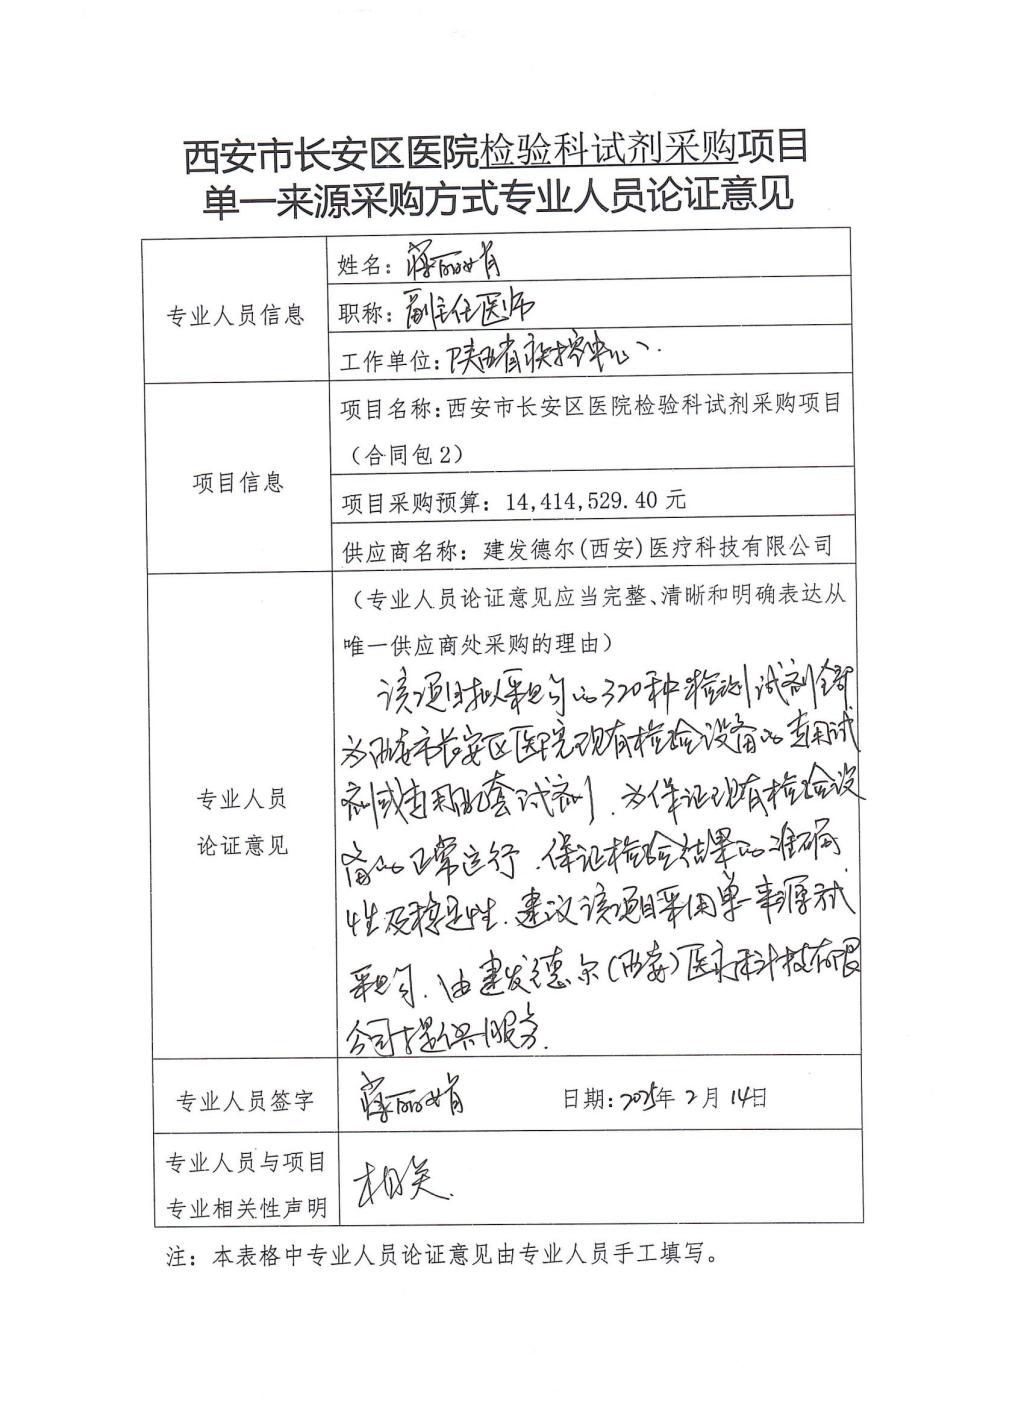 西安市长安区医院检验科试剂采购项目
单一来源采购方式专业人员论证意见
专业人员信息
姓名：蒋丽娟
职称：副主任医师
工作单位：陕西省疾控中心
项目信息
项目名称：西安市长安区医院检验科试剂采购项目
（合同包2）
项目采购预算：14,414,529.40 元
供应商名称：建发德尔(西安)医疗科技有限公司
专业人员
论证意见
（专业人员论证意见应当完整、清晰和明确表达从
唯一供应商处采购的理由）
该项目拟采购的320种检测试剂全部
为西安市长安区医院现有检验设备的专用试
剂或专用配套试剂，为保证现有检验设
备的正常运行，保证检验结果的准确
性及稳定性，建议该项目采用单一来源方式
采购，由建发德尔（西安）医疗科技有限
公司提供服务.
专业人员签字
蒋丽娟
日期：2025年2月14日
专业人员与项目
专业相关性声明
相关.
注：本表格中专业人员论证意见由专业人员手工填写。